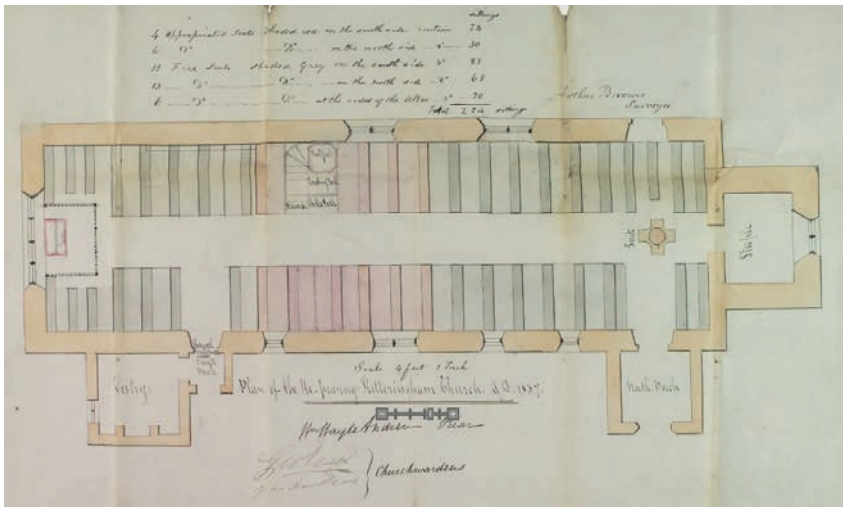 sittings
4 Appropriated Seats shaded red on the south side contain 24
6 Do Do on the north side Do 30
18 Free Seats shaded Grey on the south side Do 85
13 Do Do on the north side Do 65
6 Do Do at the sides of the Altar Do 20
Total 224 sittings
Arthur Browne
Surveyor
Pulpit
Reading Desk
Clerks Desk
Font
Steeple
Vestry
North Porch
Scale 4 feet 1 Inch
Plan of the Re-pewing Ketteringham Church. A.D. 1837.
Wm Wayte Andrew Vicar
Churchwardens